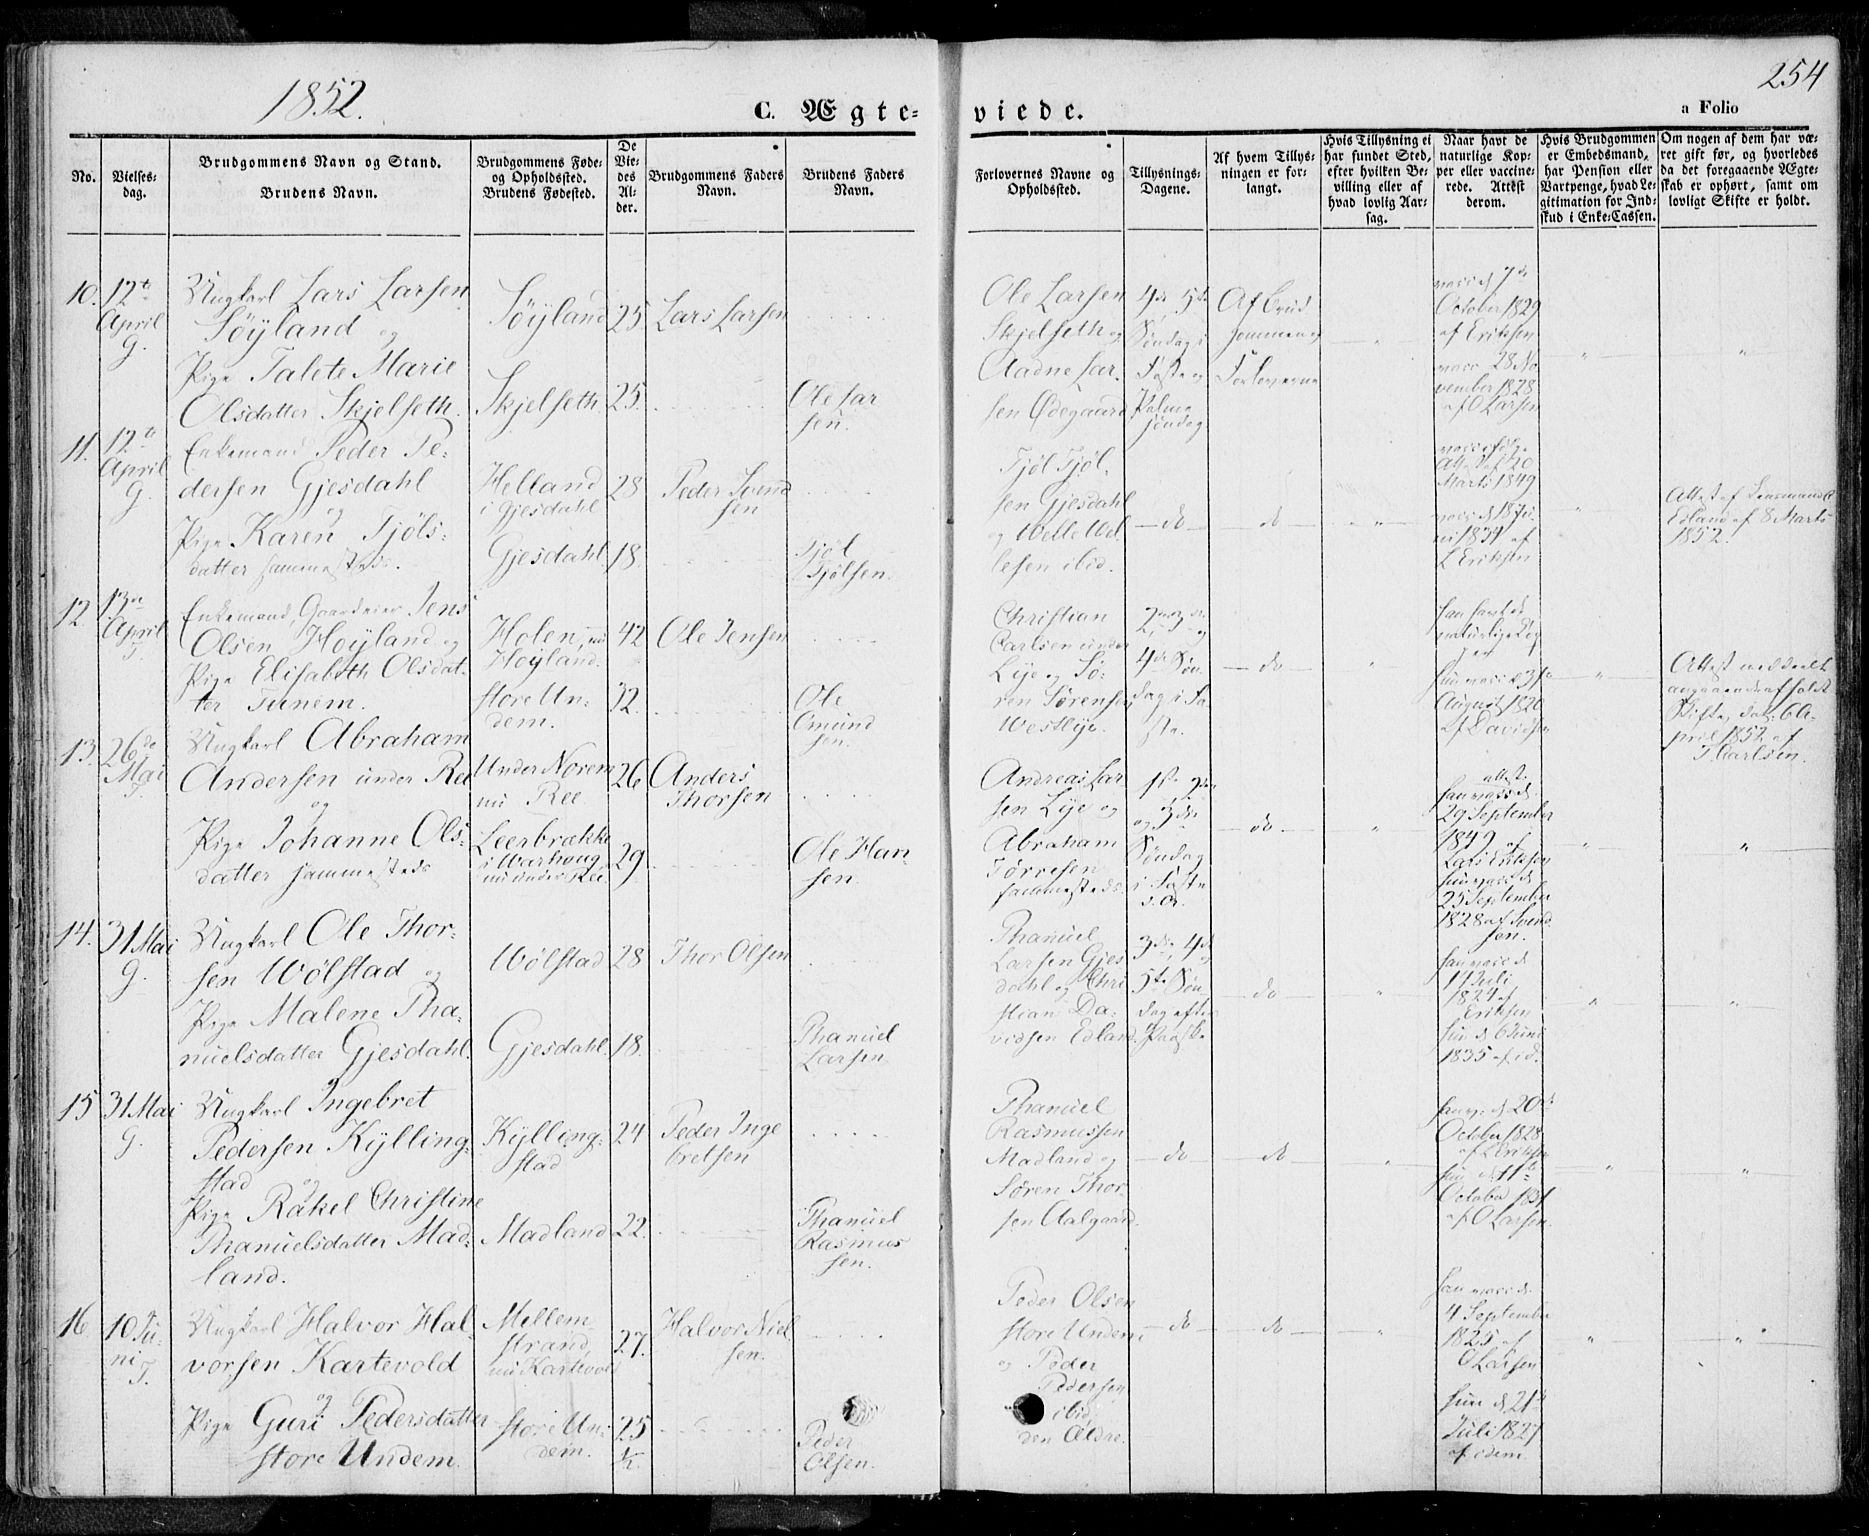 1852.
254
C. Ægte-
viede.
a Folio
No.
Vielses-
dag.
Brudgommens Navn og Stand.
Brudens Navn.
Brudgommens Føde-
og Opholdssted.
Brudens Fødested.
De
Vie-
des
Al-
der.
Brudgommens Faders
Navn.
Brudens Faders
Navn.
Forlovernes Navne og
Opholdssted.
Tillysnings-
Dagene.
Af hvem Tillys-
ningen er for-
langt.
Hvis Tillysning ei
har fundet Sted,
efter hvilken Be-
villing eller af
hvad lovlig Aar-
sag.
Naar havt de
naturlige Kop-
per eller vaccine-
rede. Attest
derom.
Hvis Brudgommen
er Embedsmand,
har Pension eller
Vartpenge, hvad Le-
gitimation for Ind-
skud i Enke-Cassen.
Om nogen af dem har væ-
ret gift før, og hvorledes
da det foregaaende Ægte-
skab er ophørt, samt om
lovligt Skifte er holdt.
10.
12te
April
G.
Ungkarl Lars Larsen
Søyland og
Pige Talete Marie
Olsdatter Skjelseth.
Søyland
Skjelseth.
25
25.
Lars Larsen
Ole Lar
sen.
Ole Larsen
Skjelseth og
Aadne Lar-
sen Ødegaard
4de, 5te
Søndag i
Faste og
Palme
søndag
Af Brud
gommen og
Forloverne
vacc. d 7de
October 1829
af Eriksen
vacc. 28 No
vember 1828
af O Larsen
11.
12te
April
G.
Enkemand Peder Pe-
dersen Gjesdahl
og
Pige Karen Tjöls-
datter sammesteds.
Helland
i Gjesdahl
Gjesdahl
28
18.
Peder Svend
sen
Tjöl
Tjölsen.
Tjøl Tjøl-
sen Gjesdahl
og Welle Wel
lesen ibid.
do
do
Marts 1849
1834 af
L Eriksen
Attest af Lensmand
Edland af 8 Marts
1852.
12.
13de
April
T.
Enkemand, Gaardeier Jens
Olsen Høyland og
Pige Elisabeth Olsdat-
ter Tunem.
Holen, nu
Høyland.
store Un-
dem.
42
32.
Ole Jensen
Ole
Omund
sen.
Christian
Carlsen under
Lye og Sø-
ren Sørensen
Westlye.
2den, 3de og
4de Søn-
dag i Fa
ste.
do
han havt de
naturlige Kop
per
hun vacc. d 31te
August 1820
af Davidsen
Attest meddeelt
angaaende afholdt
Skifte, dat: 6 A-
pril 1852 af
T Carlsen.
13.
26de
Mai
T.
Ungkarl Abraham
Andersen under Ree
og
Pige Johanne Ols-
datter sammesteds
Under Norem
nu Ree.
Leerbrække
i Warhoug
nu under Ree.
26
29.
Anders
Thorsen
Ole Han
sen.
Andreas Lar
sen Lye og
Abraham
Tørresen
sammesteds.
1ste 2den
og 3de
Søndag
i Faste
d. A.
do
attest.
han vacc. d.
29 September
1849 af
Lars Eriksen
hun vacc. d
25 September
1828 af Svend
sen.
14.
31 Mai
G.
Ungkarl Ole Thor-
sen Wølstad og
Pige Malene Tha-
nuelsdatter Gjesdahl.
Wølstad
Gjesdahl.
28
18.
Thor Olsen
Thanuel
Larsen
Thanuel
Larsen Gjes
dahl og Chri
stian Da-
vidsen Edland.
3die, 4de og
5te Søn
dag efter
Paaske
do
han vacc d
14 Juli
1824 af
Eriksen
hun d 6 Juni
1835 af id.
15
31 Mai
G.
Ungkarl Ingebret
Pedersen Kylling-
stad og
Pige Rakel Christine
Thanuelsdatter Mad-
land.
Kylling-
stad
Madland
24
22.
Peder Inge
bretsen
Thanuel
Rasmus
sen.
Thanuel
Rasmussen
Madland og
Søren Thor-
sen Aalgaard.
do
do
han v: d 20de
October 1828
af L Eriksen
hun d 11te
October 1831
af O Larsen.
16
10 Ju-
ni
T.
Ungkarl Halvor Hal-
vorsen Kartevold
og
Pige Guri Pedersdatter
store Undem.
Mellem
strand,
nu Kartevold
store Un-
dem.
27.
25
1/2
Halvor Niel
sen.
Peder
Olsen.
Peder Olsen
store Undem
og Peder
Pedersen
ibid,
den Ældre.
do
do
han vacc d.
4 September
1825 af
O Larsen
hun d 21de
Juli 1827
af idem.